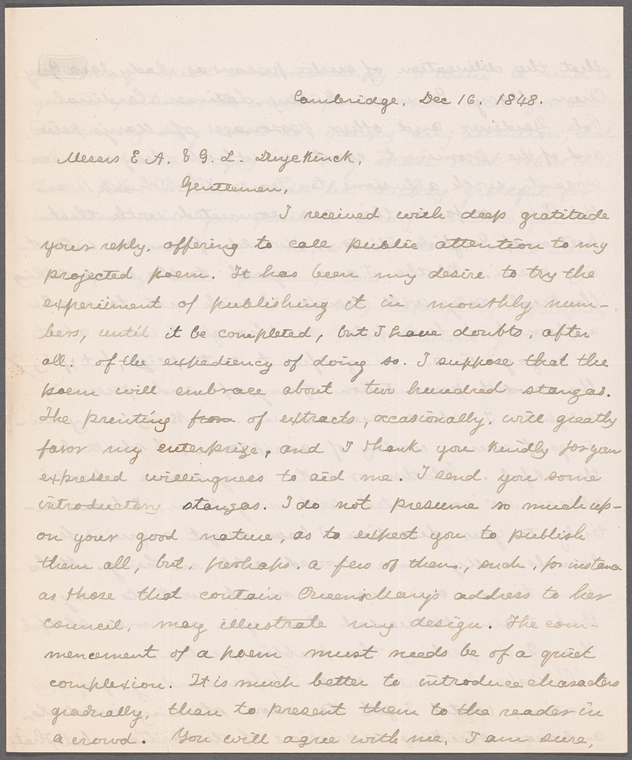 Cambridge, Dec 16. 1848.
Messrs E. A. & G. L. Duyckinck,
Gentlemen,
I received with deep gratitude
your reply, offering to call public attention to my
projected poem. It has been my desire to try the
experiment of publishing it in monthly num-
bers, until it be completed, but I have doubts, after
all, of the expediency of doing so. I suppose that the
poem will embrace about two hundred stanzas.
The printing from of extracts, occasionally, will greatly
favor my enterprize, and I thank you kindly for your
expressed willingness to aid me. I send you some
introductory stanzas. I do not presume so much up-
on your good nature, as to expect you to publish
them all, but, perhaps, a few of them, such, for instance
as those that contain Queen Mary's address to her
council, may illustrate my design. The com-
mencement of a poem must needs be of a quiet
complexion. It is much better to introduce characters
gradually, than to present them to the reader in
a crowd. You will agree with me, I am sure,